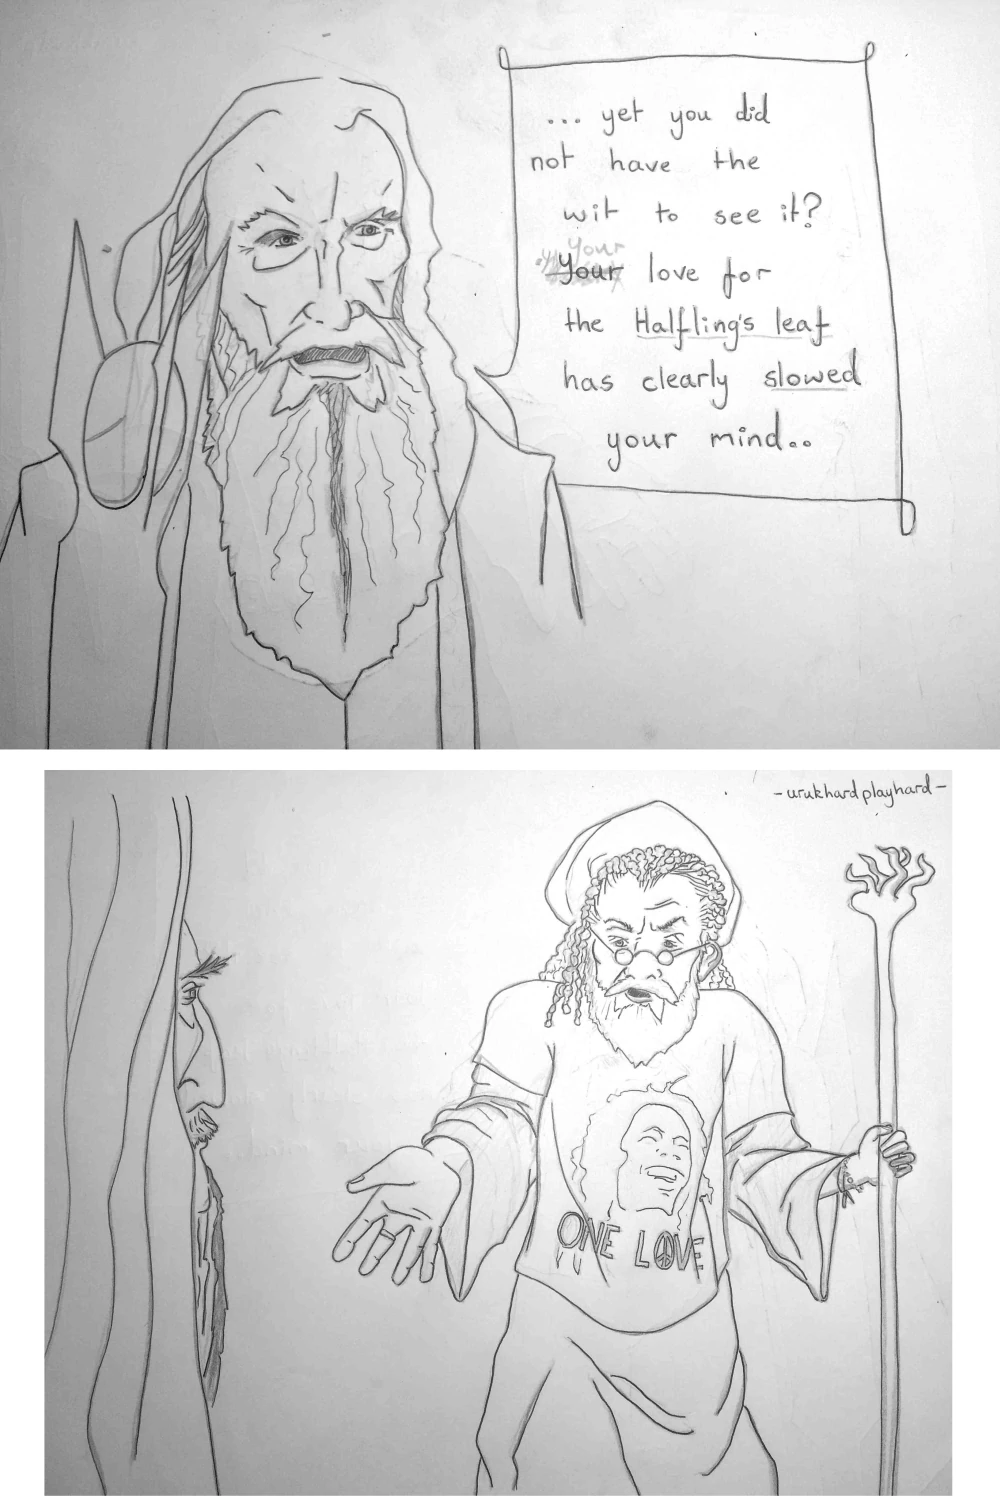 ... yet you did
not have the
wit to see it?
your
your love for
the Halfling's leaf
has clearly slowed
your mind..
- urukhardplayhard -
ONE LOVE